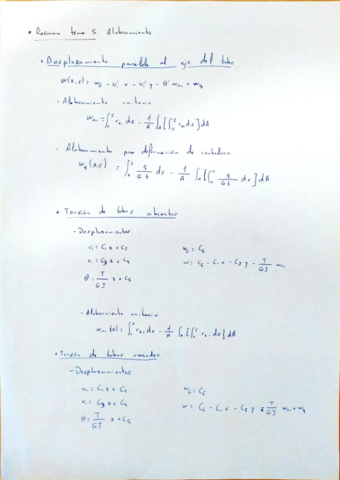 * Resumen tema 5. Alabeamiento
* Desplazamiento paralelo al eje del tubo
w(z,s) = w_G - u_c' x - v_c' y - θ' w_n + w_q
- Alabeamiento unitario
w_n = ∫_0^s r_n ds - 1/A ∫_A [∫_0^s r_n ds] dA
- Alabeamiento por deformación de cortadura
w_q (z,s) = ∫_0^s q/(Gt) ds - 1/A ∫_A [∫_0^s q/(Gt) ds] dA
* Torsión de tubos abiertos
- Desplazamientos:
u_c = C_1 z + C_2
w_G = C_6
v_c = C_3 z + C_4
w = C_6 - C_1 x - C_3 y - T/(GJ) w_n
θ = T/(GJ) z + C_5
- Alabeamiento unitario
w_n (s) = ∫_0^s r_n ds - 1/A ∫_A [∫_0^s r_n ds] dA
* Torsión de tubos cerrados
- Desplazamientos
u_c = C_1 z + C_2
w_G = C_6
v_c = C_3 z + C_4
θ = T/(GJ) z + C_5